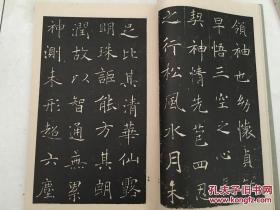 領袖也幼懷貞
早悟三空之心
契神情先苞四忍
之行松風水月未
足比其清華仙露
明珠詎能方其朗
潤故以智通無累
神測未形超六塵